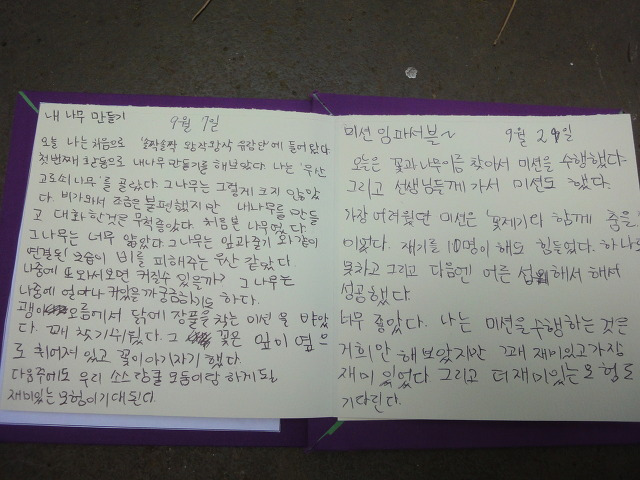 내 나무 만들기 9월 7일
오늘 나는 처음으로 에 들어 왔다
첫번째 활동으로 내나무만들기를 해보았다 나는 '우산
고로쇠나무'를 골랐다. 그나무는 그렇게 크지 않았
다. 비가와서 조금은 불편했지만 내나무를 만들
고 대화한것은 무척좋았다. 처음본 나무였다.
그나무는 너무 얇았다. 그나무는 잎과줄기 와같이
연결된 모습이 비를 피해주는 우산 같았다.
나중에 또와서보면 커질수 있을까? 그 나무는
나중에 얼마나 커있을까궁금하기도 하다.
오름에서 닭에장풀을찾는 미션을 받았
다. 꽤 찾기쉬웠다. 그 꽃은 잎이 옆으
로 튀어져 있고 꽃이아기자기 했다.
다음주에도 우리 모둠이랑 하게될
재미있는 모험이기대된다.
미션 임파서블~ 9월 일
오늘은 꽃과나무이름 찾아서 미션을 수행했다
그리고 선생님들께 가서 미션도 했다.
가장 어려웠던 미션은 '꽃제기'와 함께 춤을
이었다. 재기를 10명이 해도 힘들었다. 하나도
못차고 그리고 다음엔 어른 해서 해서
성공했다.
너무 좋았다. 나는 미션을수행하는 것은
거희안 해보았지만 꽤 재미있고가장
재미 있었다 그리고 더재미있는모험도
기다린다.